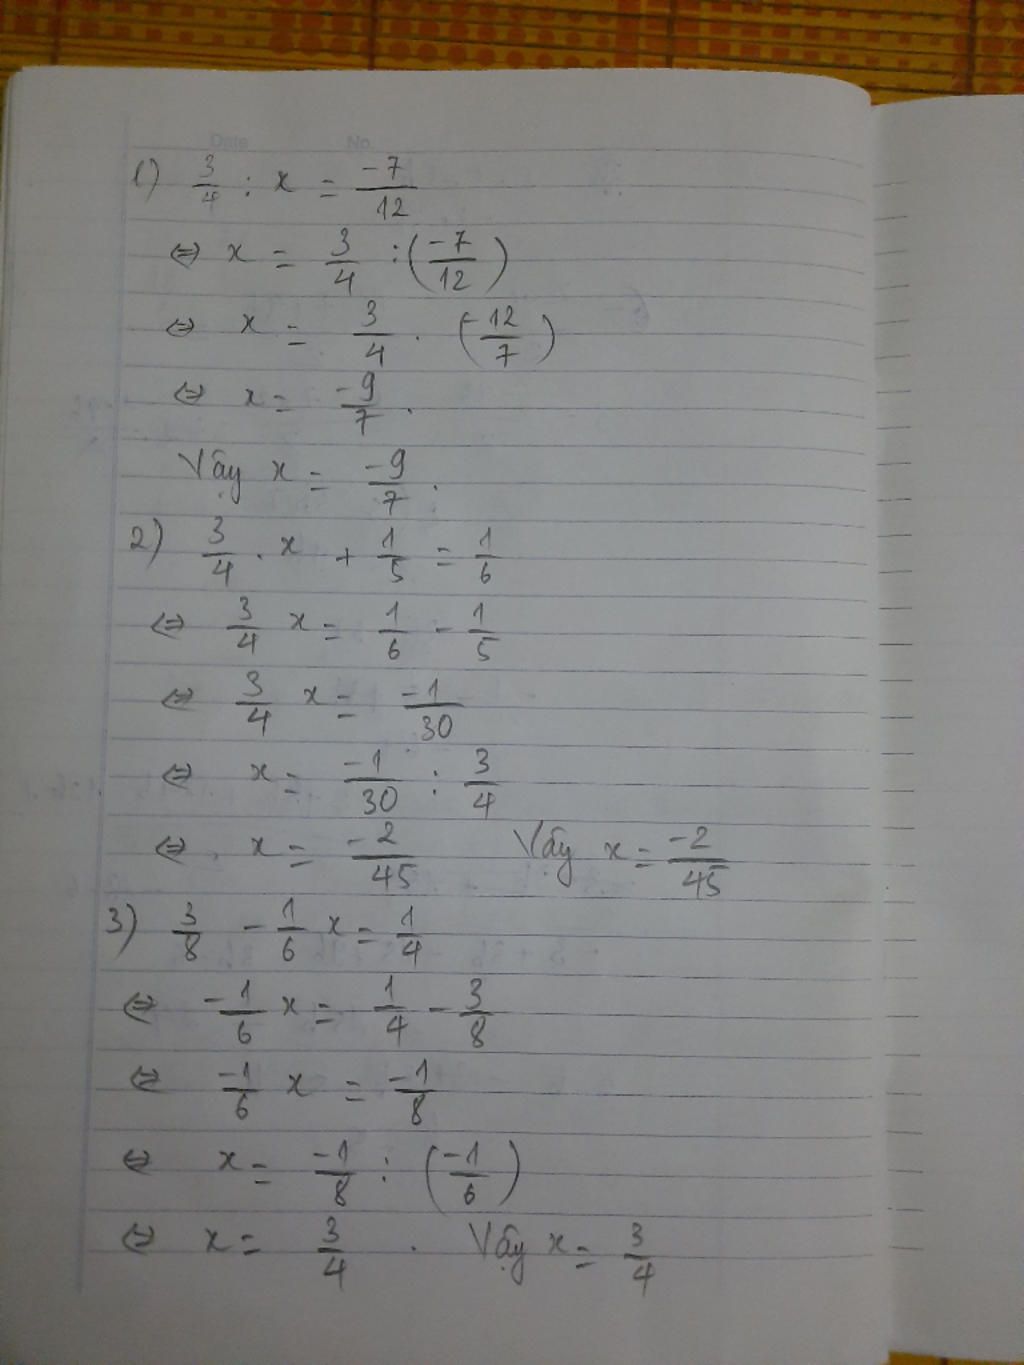 Date No.
1) 3/4 : x = -7/12
⇔ x = 3/4 : (-7/12)
⇔ x = 3/4 . (-12/7)
⇔ x = -9/7 .
Vậy x = -9/7 .
2) 3/4 . x + 1/5 = 1/6
⇔ 3/4 x = 1/6 - 1/5
⇔ 3/4 x = -1/30
⇔ x = -1/30 : 3/4
⇔ x = -2/45 Vậy x = -2/45
3) 3/8 - 1/6 x = 1/4
⇔ -1/6 x = 1/4 - 3/8
⇔ -1/6 x = -1/8
⇔ x = -1/8 : (-1/6)
⇔ x = 3/4 . Vậy x = 3/4